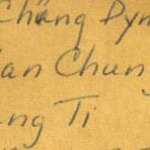 Chang Dyn
an Chung
ng Ti